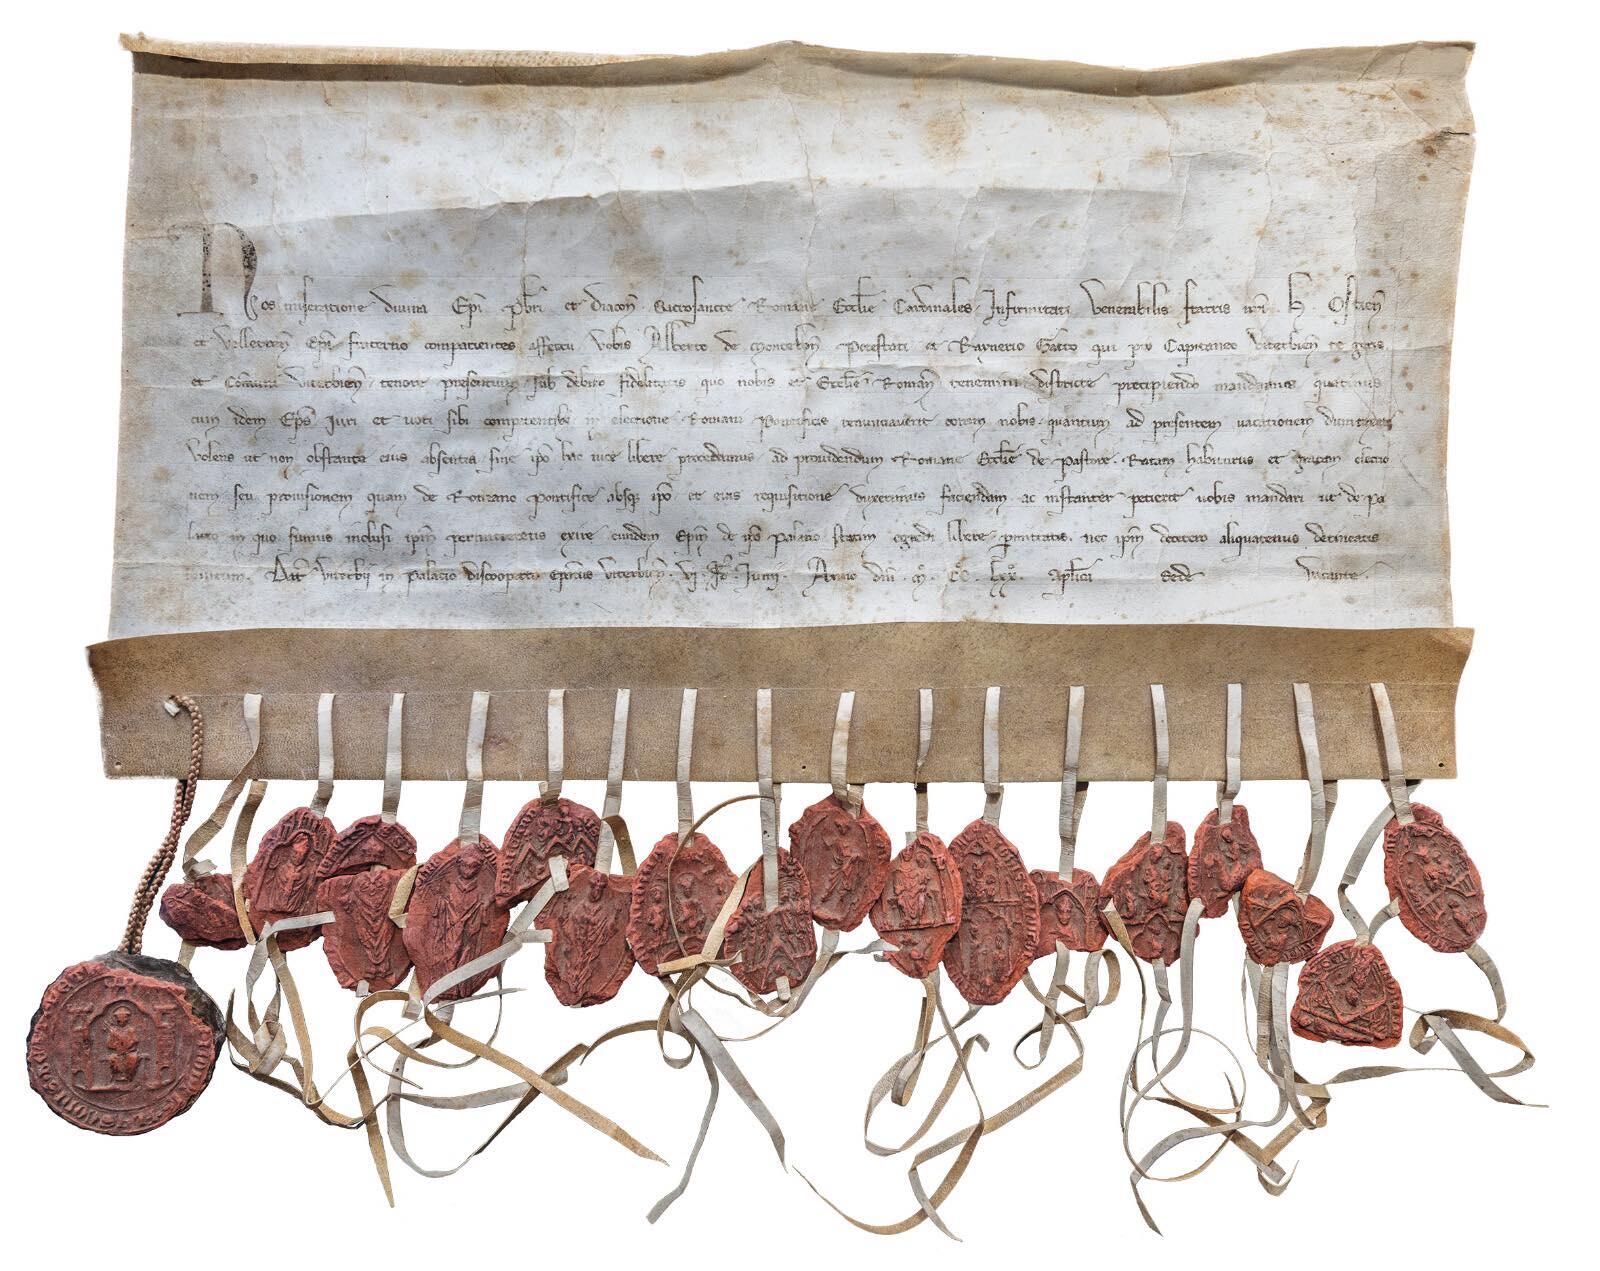 Nos miseratione divina Epi Pbri et Diacon Sacrosancte Romane Ecclie Cardinales. Infirmitati Venerabilis fratris nri. h. Ostien
et Velletren Epi fraterno compatientes affectu vobis Alberto de Montebon Potestati et Raynerio Gatto qui pro Capitaneo Viterbien se gerit
et Comuni Viterbien tenore presentium sub debito fidelitatis quo nobis et Ecclie Roman tenemini districte precipiendo mandamus quatinus
cum idem Eps Iuri et voti sibi competentibus in electione Romani Pontificis renuntiaverit coram nobis quantum ad presentem vacationem dumtaxat
Volens ut non obstante eius absentia sine ipo hac vice libere procedamus ad providendum Romane Ecclie de Pastore. Ratam habiturus et gratam electio
nem seu provisionem quam de Romano Pontifice absq ipo et eius requisitione duxerimus faciendam ac instanter petierit vobis mandari ut de pa
latio in quo sumus inclusi ipm permitteretis exire eundem Epm de ipo Palatio statim egredi libere permittatis. nec ipm decetero aliquatenus detineatis
invitum. Dat Viterbii in Palacio discooperto Epatus Viterbien. vj. Id. Junii. Anno dni. M. CC. Lxx. Aplica Sede Vacante.